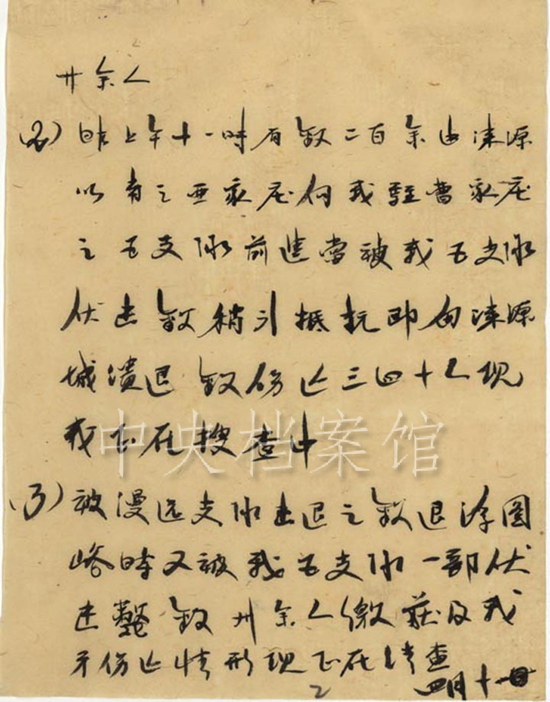 廿余人
(2)昨上午十一时有敌二百余由涞源
以南之亚家庄向我驻曹家庄
之五支队前进当被我五支队
伏击敌稍引抵抗即向涞源
城溃退敌伤亡三四十人现
我部正在搜查中
(3)被漫远支队击退之敌退浮图
峪时又被我五支队一部伏
击毙敌卅余人缴获及我
牙伤亡情形现正在清查
四月十一日
2
中央档案馆